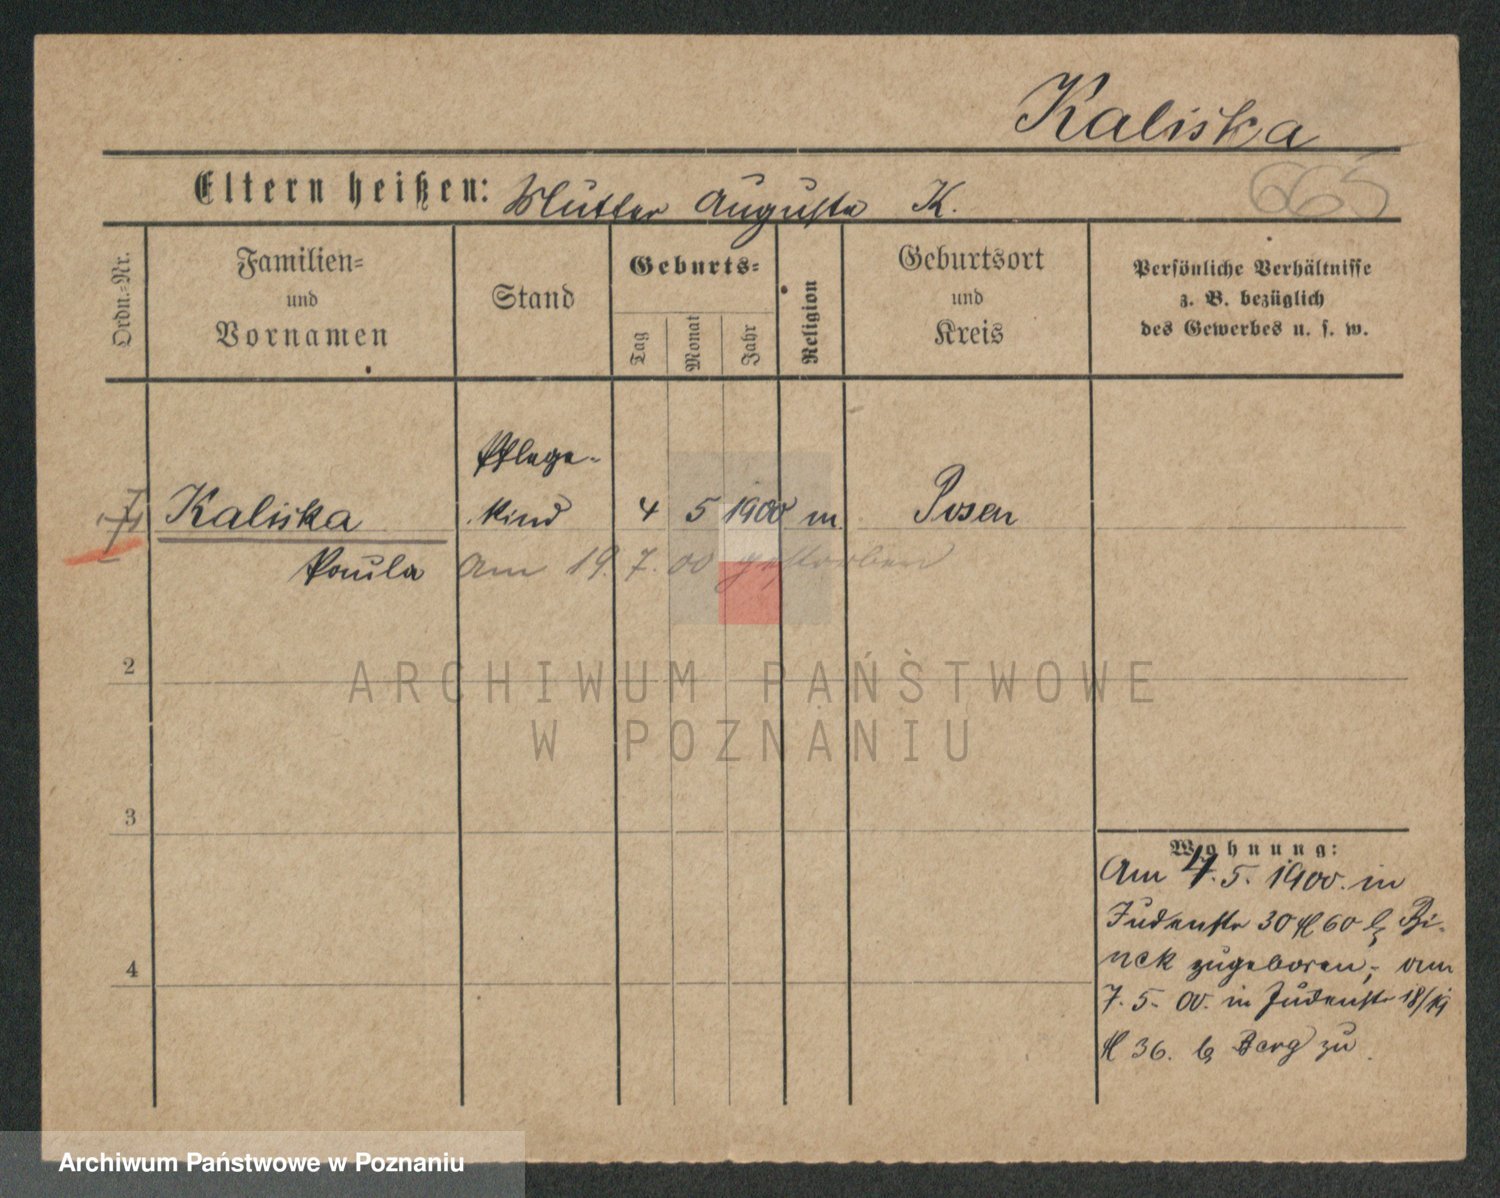 Kaliska
Eltern heißen: Mutter Auguste K.
665
Ordn.-Nr.
Familien-
und
Vornamen
Stand
Geburts-
Tag
Monat
Jahr
Religion
Geburtsort
und
Kreis
Persönliche Verhältnisse
z. B. bezüglich
des Gewerbes u. s. w.
Pflege-
Kaliska kind 4 5 1900 m Posen
Paula Am 19. 7. 00 gestorben
2
3
4
Wohnung:
Am 4. 5. 1900. in
Judenstr 30 60 b Bi-
nck zugeboren; am
7. 5. 00. in Judenstr 18/19
36. b Berg zu
ARCHIWUM PAŃSTWOWE
W POZNANIU
Archiwum Państwowe w Poznaniu